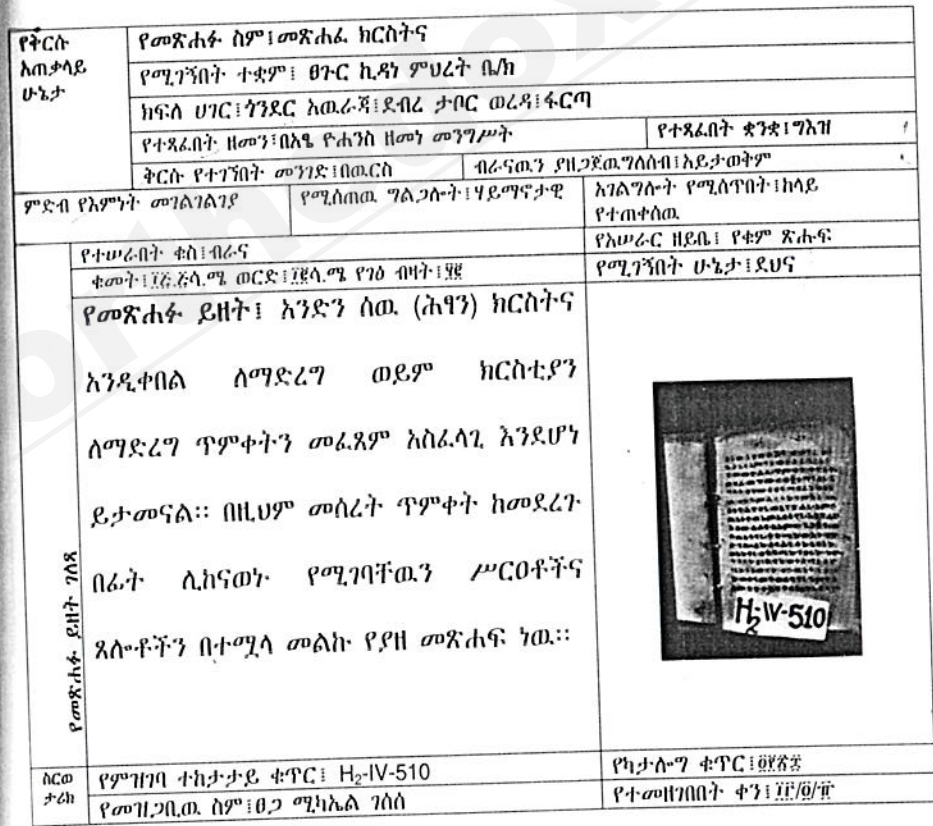 የቅርሱ አጠቃላይ ሁኔታ
የመጽሐፉ ስም፤መጽሐፈ ክርስትና
የሚገኝበት ተቋም፤ ፀጉር ኪዳነ ምህረት ቤ/ክ
ክፍለ ሀገር፤ጎንደር አዉራጃ፤ደብረ ታቦር ወረዳ፤ፋርጣ
የተጻፈበት ዘመን፤በአፄ ዮሐንስ ዘመነ መንግሥት የተጻፈበት ቋንቋ፤ግእዝ
ቅርሱ የተገኘበት መንገድ፤በዉርስ ብራናዉን ያዘጋጀዉግለሰብ፤አይታወቅም
ምድብ የእምነት መገልገልገያ የሚሰጠዉ ግልጋሎት፤ሃይማኖታዊ አገልግሎት የሚሰጥበት፤ከላይ የተጠቀሰዉ
የመጽሐፉ ይዘት ገለጻ
የተሠራበት ቁስ፤ብራና የአሠራር ዘይቤ፤ የቁም ጽሑፍ
ቁመት፤ ወርድ፤ የገፅ ብዛት፤ የሚገኝበት ሁኔታ፤ደህና
የመጽሐፉ ይዘት፤ አንድን ሰዉ (ሕፃን) ክርስትና
እንዲቀበል ለማድረግ ወይም ክርስቲያን
ለማድረግ ጥምቀትን መፈጸም አስፈላጊ እንደሆነ
ይታመናል፡፡ በዚህም መሰረት ጥምቀት ከመደረጉ
በፊት ሊከናወኑ የሚገባቸዉን ሥርዐቶችና
ጸሎቶችን በተሟላ መልኩ የያዘ መጽሐፍ ነዉ፡፡
H2-IV-510
ስርወ ታሪክ
የምዝገባ ተከታታይ ቁጥር፤ H₂-IV-510 የካታሎግ ቁጥር፤
የመዝጋቢዉ ስም፤ፀጋ ሚካኤል ገሰሰ የተመዘገበበት ቀን፤